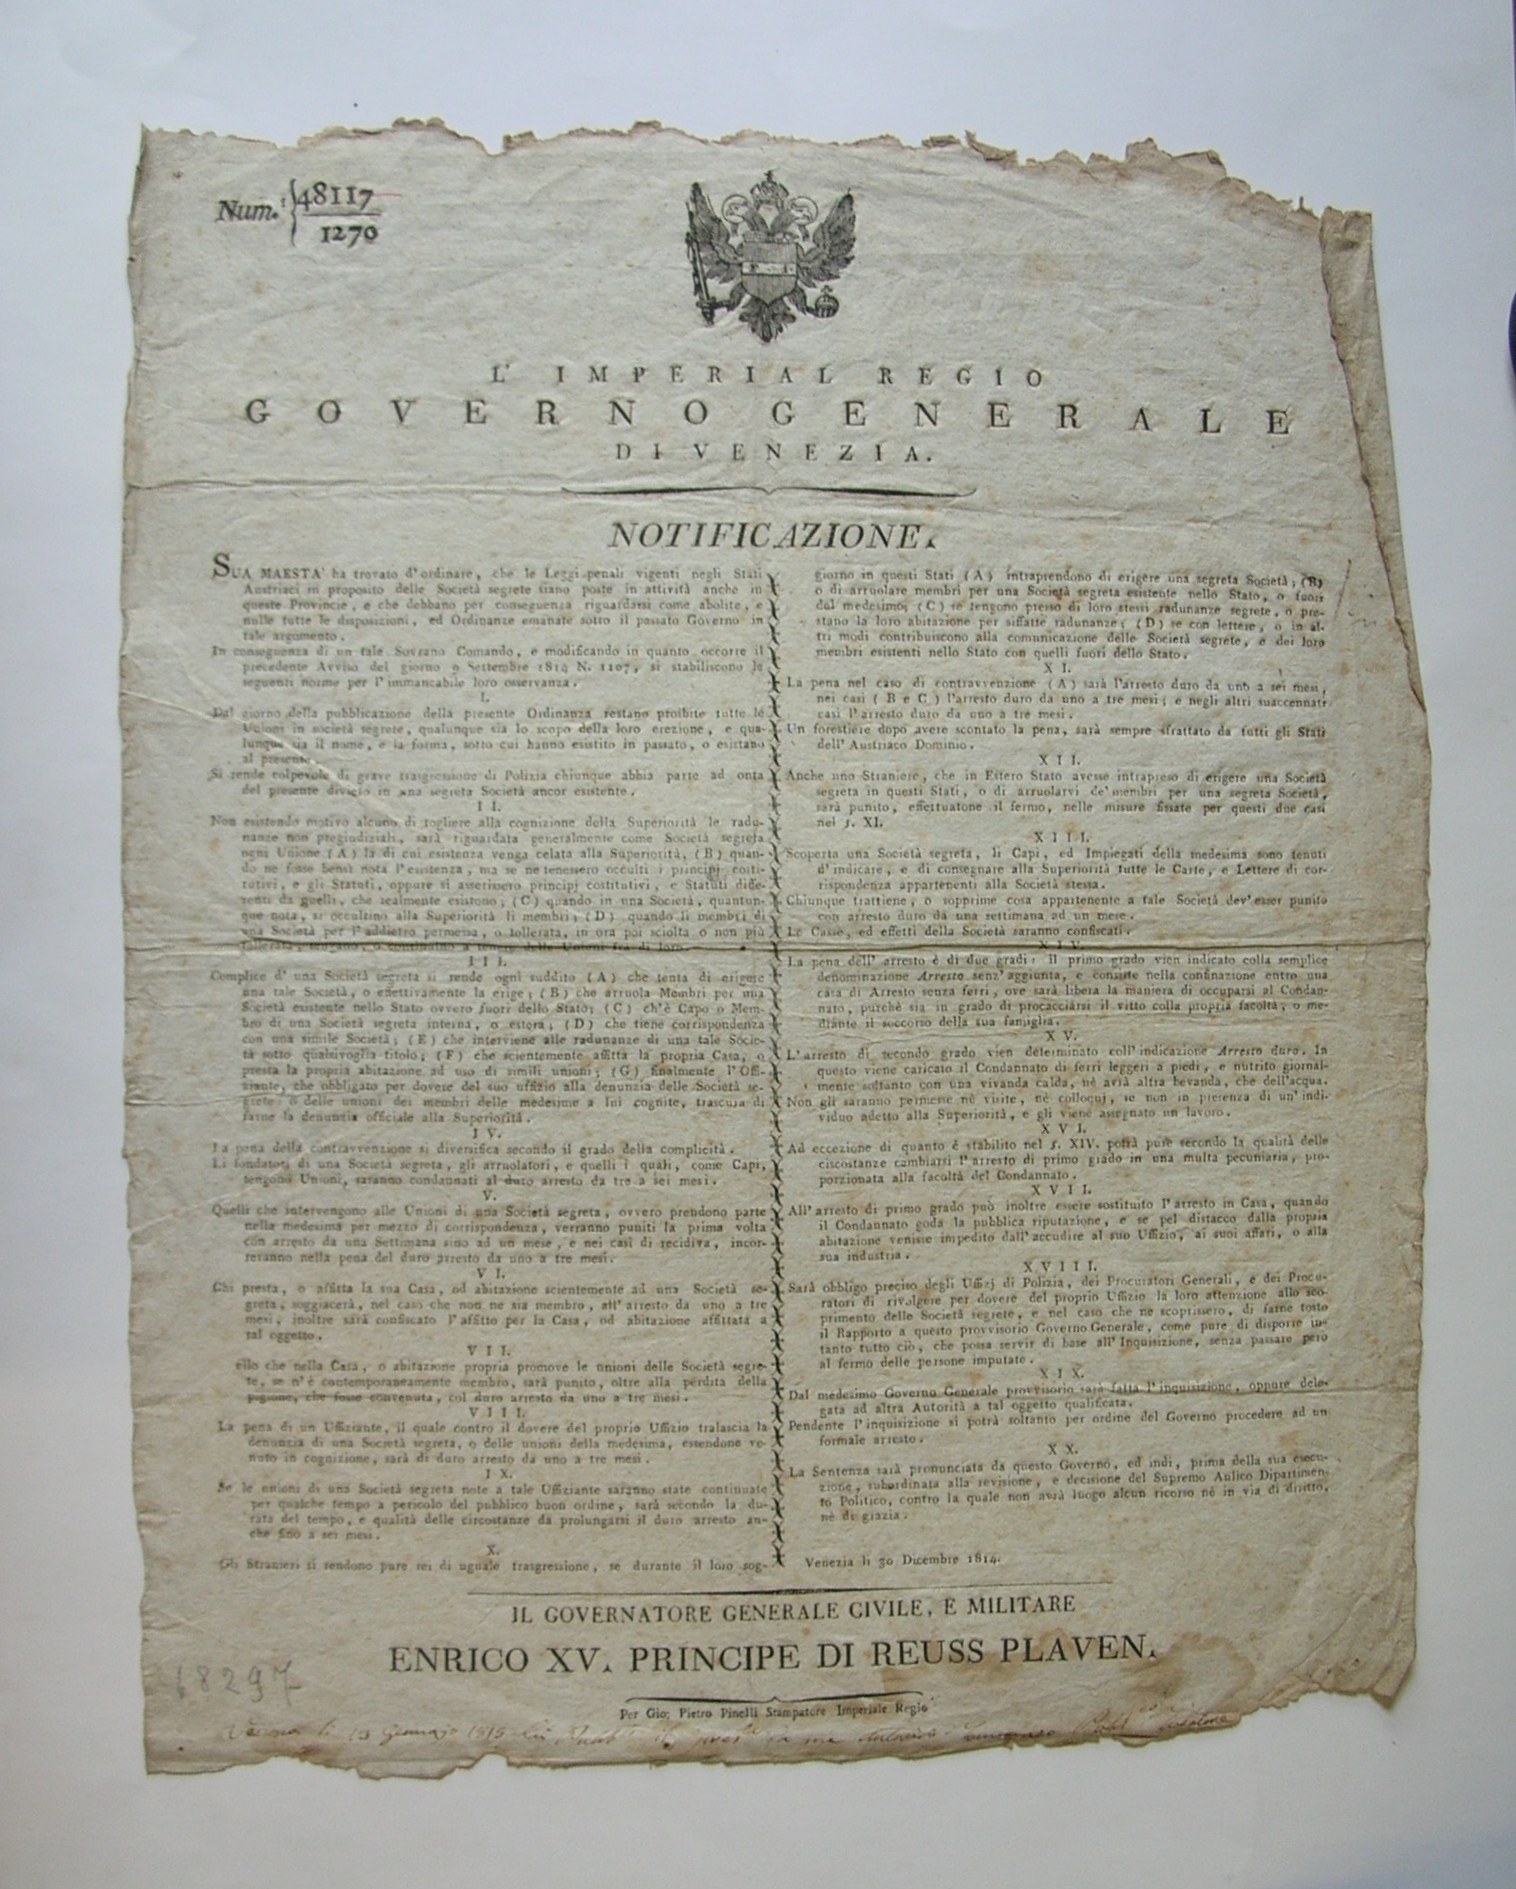 Num.
48117
1270
L' IMPERIAL REGIO
GOVERNO GENERALE
DI VENEZIA.
NOTIFICAZIONE.
SUA MAESTA' ha trovato d'ordinare, che le Leggi penali vigenti negli Stati
Austriaci in proposito delle Società segrete siano poste in attività anche in
queste Provincie, e che debbano per conseguenza riguardarsi come abolite, e
nulle tutte le disposizioni, ed Ordinanze emanate sotto il passato Governo in
tale argomento.
In conseguenza di un tale Sovrano Comando, e modificando in quanto occorre il
precedente Avviso del giorno 9 Settembre 1814 N. 1107, si stabiliscono le
seguenti norme per l'immancabile loro osservanza.
I.
Dal giorno della pubblicazione della presente Ordinanza restano proibite tutte le
Unioni in società segrete, qualunque sia lo scopo della loro erezione, e qua-
lunque sia il nome, e la forma, sotto cui hanno esistito in passato, o esistano
al presente.
Si rende colpevole di grave trasgressione di Polizia chiunque abbia parte ad onta
del presente divieto in una segreta Società ancor esistente.
II.
Non esistendo motivo alcuno di togliere alla cognizione della Superiorità le radu-
nanze non pregiudiziali, sarà riguardata generalmente come Società segreta
ogni Unione (A) la di cui esistenza venga celata alla Superiorità, (B) quan-
do ne fosse bensì nota l'esistenza, ma se ne tenessero occulti i principj costi-
tutivi, e gli Statuti, oppure si asserissero principj costitutivi, e Statuti diffe-
renti da quelli, che realmente esistono; (C) quando in una Società, quantun-
que nota, si occultino alla Superiorità li membri; (D) quando li membri di
una Società per l'addietro permessa, o tollerata, in ora poi sciolta o non più
tollerata, tengano, o continuino a tenere delle Unioni fra di loro.
III.
Complice d' una Società segreta si rende ogni suddito (A) che tenta di erigere
una tale Società, o effettivamente la erige; (B) che arruola Membri per una
Società esistente nello Stato ovvero fuori dello Stato; (C) ch'è Capo o Mem-
bro di una Società segreta interna, o estera; (D) che tiene corrispondenza
con una simile Società; (E) che interviene alle radunanze di una tale Socie-
tà sotto qualsivoglia titolo; (F) che scientemente affitta la propria Casa, o
presta la propria abitazione ad uso di simili unioni; (G) finalmente l'Offi-
ziante, che obbligato per dovere del suo uffizio alla denunzia delle Società se-
grete o delle unioni dei membri delle medesime a lui cognite, trascura di
farne la denunzia officiale alla Superiorità.
IV.
La pena della contravvenzione si diversifica secondo il grado della complicità.
Li fondatori di una Società segreta, gli arruolatori, e quelli i quali, come Capi,
tengono Unioni, saranno condannati al duro arresto da tre a sei mesi.
V.
Quelli che intervengono alle Unioni di una Società segreta, ovvero prendono parte
nella medesima per mezzo di corrispondenza, verranno puniti la prima volta
con arresto da una Settimana sino ad un mese, e nei casi di recidiva, incor-
reranno nella pena del duro arresto da uno a tre mesi.
VI.
Chi presta, o affitta la sua Casa, od abitazione scientemente ad una Società se-
greta, soggiacerà, nel caso che non ne sia membro, all'arresto da uno a tre
mesi, inoltre sarà confiscato l'affitto per la Casa, od abitazione affittata a
tal oggetto.
VII.
ello che nella Casa, o abitazione propria promove le unioni delle Società segre-
te, se n'è contemporaneamente membro, sarà punito, oltre alla perdita della
pigione, che fosse convenuta, col duro arresto da uno a tre mesi.
VIII.
La pena di un Uffiziante, il quale contro il dovere del proprio Uffizio tralascia la
denunzia di una Società segreta, o delle unioni della medesima, essendone ve-
nuto in cognizione, sarà di duro arresto da uno a tre mesi.
IX.
Se le unioni di una Società segreta note a tale Uffiziante saranno state continuate
per qualche tempo a pericolo del pubblico buon ordine, sarà secondo la du-
rata del tempo, e qualità delle circostanze da prolungarsi il duro arresto an-
che fino a sei mesi.
X.
Gli Stranieri si rendono pure rei di uguale trasgressione, se durante il loro sog-
giorno in questi Stati (A) intraprendono di erigere una segreta Società; (B)
o di arruolare membri per una Società segreta esistente nello Stato, o fuori
dal medesimo; (C) se tengono presso di loro stessi radunanze segrete, o pre-
stano la loro abitazione per siffatte radunanze; (D) se con lettere, o in al-
tri modi contribuiscono alla comunicazione delle Società segrete, e dei loro
membri esistenti nello Stato con quelli fuori dello Stato.
XI.
La pena nel caso di contravvenzione (A) sarà l'arresto duro da uno a sei mesi,
nei casi (B e C) l'arresto duro da uno a tre mesi; e negli altri suaccennati
casi l'arresto duro da uno a tre mesi.
Un forestiere dopo avere scontato la pena, sarà sempre sfrattato da tutti gli Stati
dell' Austriaco Dominio.
XII.
Anche uno Straniero, che in Estero Stato avesse intrapreso di erigere una Società
segreta in questi Stati, o di arruolarvi de' membri per una segreta Società,
sarà punito, effettuatone il fermo, nelle misure fissate per questi due casi
nel §. XI.
XIII.
Scoperta una Società segreta, li Capi, ed Impiegati della medesima sono tenuti
d'indicare, e di consegnare alla Superiorità tutte le Carte, e Lettere di cor-
rispondenza appartenenti alla Società stessa.
Chiunque trattiene, o sopprime cosa appartenente a tale Società dev'esser punito
con arresto duro da una settimana ad un mese.
Le Casse, ed effetti della Società saranno confiscati.
XIV.
La pena dell' arresto è di due gradi: Il primo grado vien indicato colla semplice
denominazione Arresto senz'aggiunta, e consiste nella confinazione entro una
casa di Arresto senza ferri, ove sarà libera la maniera di occuparsi al Condan-
nato, purchè sia in grado di procacciarsi il vitto colla propria facoltà, o me-
diante il soccorso della sua famiglia.
XV.
L'arresto di secondo grado vien determinato coll'indicazione Arresto duro. In
questo viene caricato il Condannato di ferri leggeri a piedi, e nutrito giornal-
mente soltanto con una vivanda calda, nè avrà altra bevanda, che dell'acqua.
Non gli saranno permesse nè visite, nè colloquj, se non in presenza di un'indi-
viduo adetto alla Superiorità, e gli viene assegnato un lavoro.
XVI.
Ad eccezione di quanto è stabilito nel §. XIV. potrà pure secondo la qualità delle
ciscostanze cambiarsi l'arresto di primo grado in una multa pecuniaria, pro-
porzionata alla facoltà del Condannato.
XVII.
All'arresto di primo grado può inoltre essere sostituito l'arresto in Casa, quando
il Condannato goda la pubblica riputazione, e se pel distacco dalla propria
abitazione venisse impedito dall'accudire al suo Uffizio, ai suoi affari, o alla
sua industria.
XVIII.
Sarà obbligo preciso degli Uffizj di Polizia, dei Procuratori Generali, e dei Procu-
ratori di rivolgere per dovere del proprio Uffizio la loro attenzione allo sco-
primento delle Società segrete, e nel caso che ne scoprissero, di farne tosto
il Rapporto a questo provvisorio Governo Generale, come pure di disporre in-
tanto tutto ciò, che possa servir di base all'Inquisizione, senza passare però
al fermo delle persone imputate.
XIX.
Dal medesimo Governo Generale provvisorio sarà fatta l'inquisizione, oppure dele-
gata ad altra Autorità a tal oggetto qualificata.
Pendente l'inquisizione si potrà soltanto per ordine del Governo procedere ad un
formale arresto.
XX.
La Sentenza sarà pronunciata da questo Governo, ed indi, prima della sua esecu-
zione, subordinata alla revisione, e decisione del Supremo Aulico Dipartimen-
to Politico, contro la quale non avrà luogo alcun ricorso nè in via di diritto,
nè di grazia.
Venezia li 30 Dicembre 1814.
IL GOVERNATORE GENERALE CIVILE, E MILITARE
ENRICO XV. PRINCIPE DI REUSS PLAVEN.
Per Gio: Pietro Pinelli Stampatore Imperiale Regio
68297
li 13 Gennajo 1815